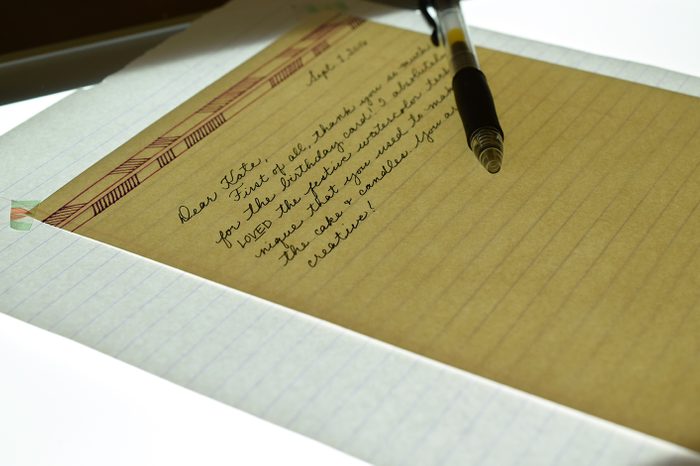 Sept. 7, 
Dear Kate,
First of all, thank you so much
for the birthday card! I absolutely
LOVED the festive watercolor tech
nique that you used to make
the cake & candles. You are
creative!